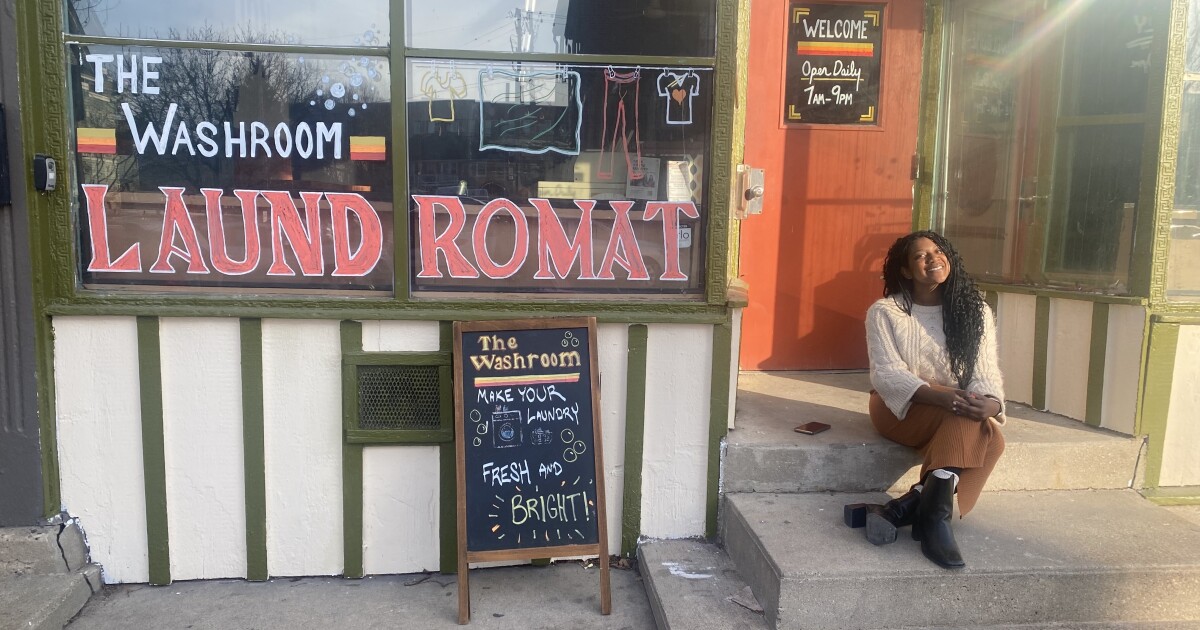 THE
WASHROOM
LAUNDROMAT
WELCOME
Open Daily
7AM-9PM
The
Washroom
MAKE YOUR
LAUNDRY
FRESH AND
BRIGHT!